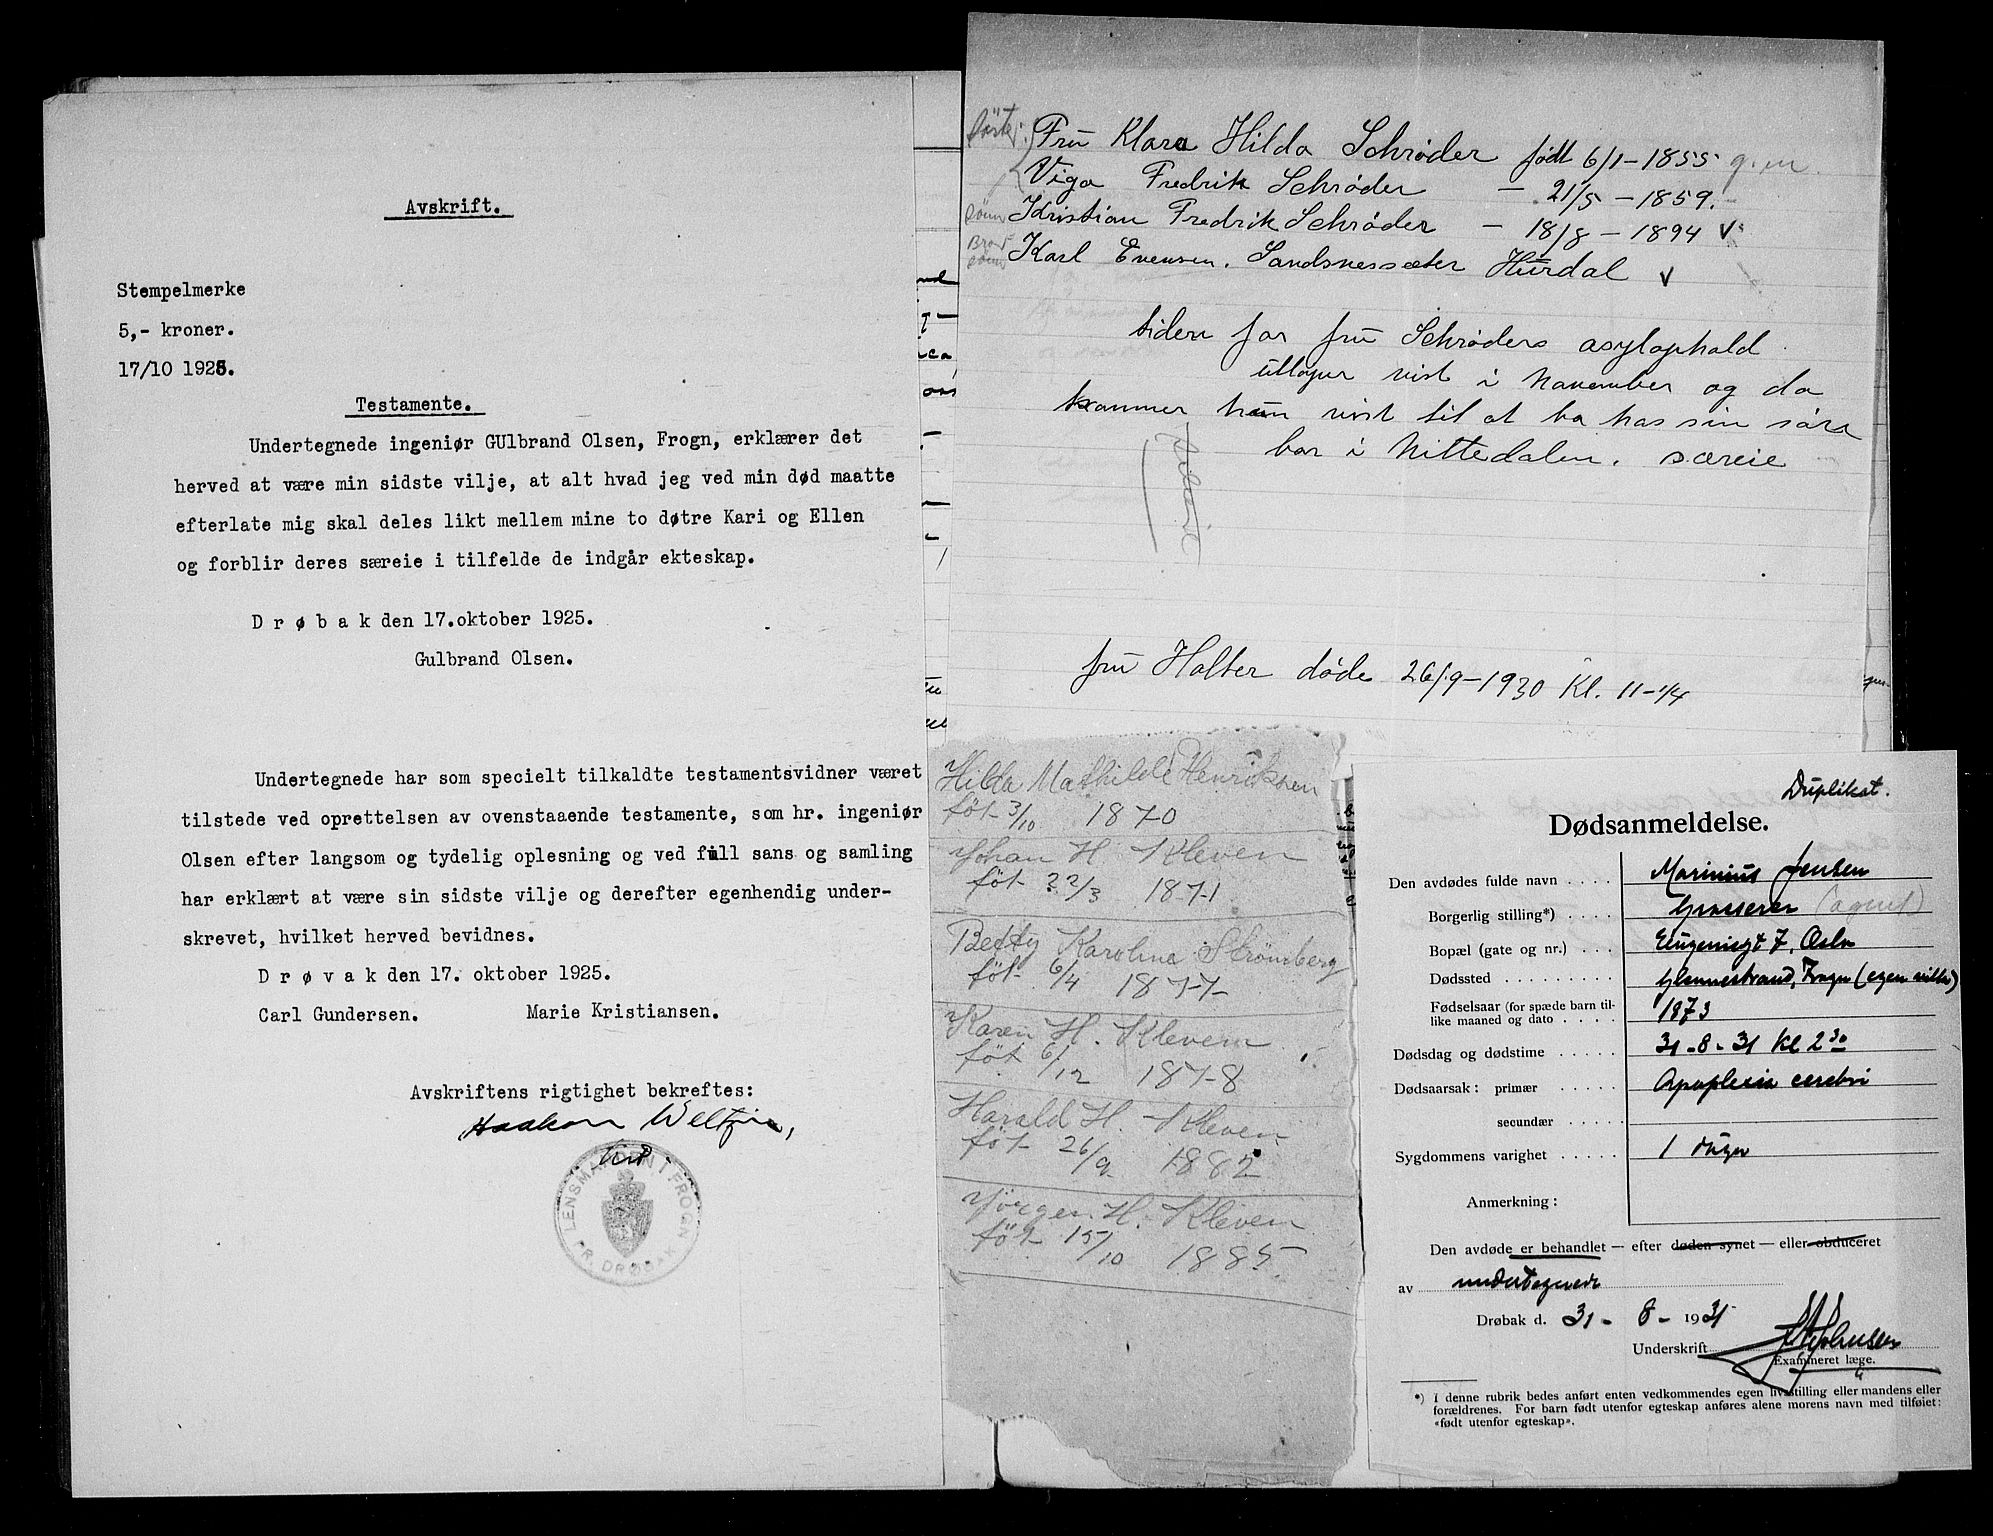 Avskrift.
Stempelmerke
5,- kroner.
17/10 1925.
Testamente.
Undertegnede ingeniør GUlbrand Olsen, Frogn, erklærer det
herved at være min sidste vilje, at alt hvad jeg ved min død maatte
efterlate mig skal deles likt mellem mine to døtre Kari og Ellen
og forblir deres særeie i tilfelde de indgår ekteskap.
D r ø b a k den 17.oktober 1925.
Gulbrand Olsen.
Undertegnede har som specielt tilkaldte testamentsvidner været
tilstede ved oprettelsen av ovenstaaende testamente, som hr. ingeniør
Olsen efter langsom og tydelig oplesning og ved full sans og samling
har erklært at være sin sidste vilje og derefter egenhendig under-
skrevet, hvilket herved bevidnes.
D r ø v a k den 17. oktober 1925.
Carl Gundersen. Marie Kristiansen.
Avskriftens rigtighet bekreftes:
Haakon
LENSMANDEN I FROGN
PR. DRØBAK
Fru Klara Hilda Schrøder født 6/1-1855 g.m.
Vigo Fredrik Schrøder — 21/5 - 1859.
sønn Kristian Fredrik Schrøder — 18/8 - 1894 v
Bror sønn Karl Evensen. Sandsnessæter Hurdal v
tiden for fru Schrøders asylophold
utløper vist i november og da
kommer hun vist til at bo hos sin
bor i Nittedalen. særeie
fru Holter døde 26/9-1930 Kl. 11-1/4
Hilda Mathilde Henriksen
føt 3/10 1870
Johan H. Kleven
føt 22/3 1871
Betty Karolina Strømberg
føt 6/4 1877
Karen H. Kleven
føt 6/12 1878
Harald H. Kleven
føt 26/9 1882
Jørgen H. Kleven
føt 15/10 1885.
Duplikat.
Dødsanmeldelse.
Den avdødes fulde navn . . . . Marinius Jensen
Borgerlig stilling*) . . . . Grosserer (agent)
Bopæl (gate og nr.) . . . . Eugeniesgt 7, Oslo
Dødssted . . . . . . . . Glennestrand, Frogn (egen villa)
Fødselsaar (for spæde barn til-
like maaned og dato . . . . 1873
Dødsdag og dødstime . . . . . 31-8-31 Kl 2 30
Dødsaarsak: primær . . . . . Apoplexia cerebri
secundær . . . . .
Sygdommens varighet . . . . . 1 dager
Anmerkning :
Den avdøde er behandlet — efter døden synet — eller obduceret
av undertegnede
Drøbak d. 31 - 8 - 1931
Underskrift
Examineret læge.
*) I denne rubrik bedes anført enten vedkommendes egen livsstilling eller mandens eller
forældrenes. For barn født utenfor egteskap anføres alene morens navn med tilføiet:
«født utenfor egteskap».